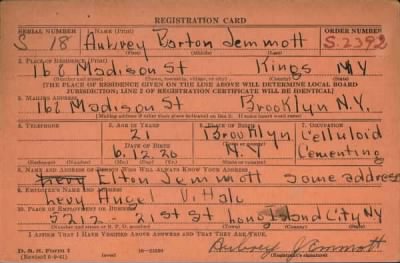 REGISTRATION CARD
SERIAL NUMBER 1. NAME (Print) ORDER NUMBER
S 18 Aubrey Barton Jemmott S.2392
(First) (Middle) (Last)
2. PLACE OF RESIDENCE (Print)
168 Madison St Kings NY
(Number and street) (Town, township, village, or city) (County) (State)
[THE PLACE OF RESIDENCE GIVEN ON THE LINE ABOVE WILL DETERMINE LOCAL BOARD
JURISDICTION; LINE 2 OF REGISTRATION CERTIFICATE WILL BE IDENTICAL]
3. MAILING ADDRESS
168 Madison St Brooklyn N.Y.
[Mailing address if other than place indicated on line 2. If same insert word same]
4. TELEPHONE 5. AGE IN YEARS 6. PLACE OF BIRTH 7. OCCUPATION
21 Brooklyn Celluloid
DATE OF BIRTH
6.12.20 N.Y Cementing
(Exchange) (Number) (Mo.) (Day) (Yr.) (State or country)
8. NAME AND ADDRESS OF PERSON WHO WILL ALWAYS KNOW YOUR ADDRESS
Elton Jemmott same address
9. EMPLOYER'S NAME AND ADDRESS
Levy Angel V. Hale
10. PLACE OF EMPLOYMENT OR BUSINESS
5212 - 21st St Long Island City NY
(Number and street or R. F. D. number) (Town) (County) (State)
I AFFIRM THAT I HAVE VERIFIED ABOVE ANSWERS AND THAT THEY ARE TRUE.
D. S. S. Form 1
(Revised 6-9-41) (over)
Aubrey Jemmott
(Registrant's signature)